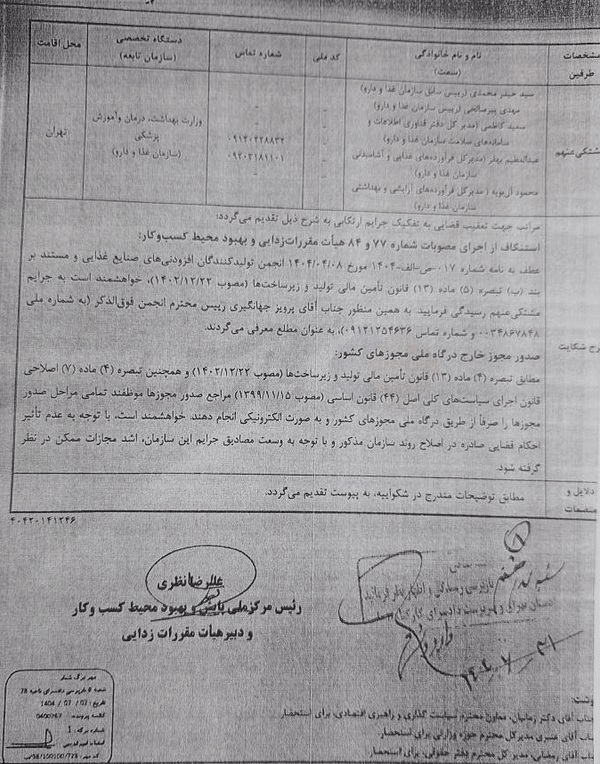 مشخصات طرفین
نام و نام خانوادگی (سمت)
کد ملی
شماره تماس
دستگاه تخصصی (سازمان تابعه)
محل اقامت
مشتکی‌عنهم
سید حیدر محمدی (رییس سابق سازمان غذا و دارو)
مهدی پیرصالحی (رییس سازمان غذا و دارو)
سعید کاظمی (مدیر کل دفتر فناوری اطلاعات و
سامانه‌های سلامت سازمان غذا و دارو)
عبدالعظیم بهفر (مدیرکل فرآورده‌های غذایی و آشامیدنی
سازمان غذا و دارو)
محمود آل‌بویه (مدیرکل فرآورده‌های آرایشی و بهداشتی
سازمان غذا و دارو)
وزارت بهداشت، درمان وآموزش
پزشکی
(سازمان غذا و دارو)
تهران
مراتب جهت تعقیب قضایی به تفکیک جرایم ارتکابی به شرح ذیل تقدیم می‌گردد:
استنکاف از اجرای مصوبات شماره ۷۷ و ۸۴ هیأت مقررات‌زدایی و بهبود محیط کسب‌وکار:
عطف به نامه شماره ۰۱۷-ص-الف-۱۴۰۴ مورخ ۱۴۰۴/۰۴/۰۸ انجمن تولیدکنندگان افزودنی‌های صنایع غذایی و مستند بر
بند (ب) تبصره (۵) ماده (۱۳) قانون تأمین مالی تولید و زیرساخت‌ها (مصوب ۱۴۰۲/۱۲/۲۲)، خواهشمند است به جرایم
مشتکی‌عنهم رسیدگی فرمایید. به همین منظور جناب آقای پرویز جهانگیری رییس محترم انجمن فوق‌الذکر (به شماره ملی
و شماره تماس به عنوان مطلع معرفی می‌گردند.
شرح شکایت
صدور مجوز خارج درگاه ملی مجوزهای کشور:
مطابق تبصره (۴) ماده (۱۳) قانون تأمین مالی تولید و زیرساخت‌ها (مصوب ۱۴۰۲/۱۲/۲۲) و همچنین تبصره (۴) ماده (۷) اصلاحی
قانون اجرای سیاست‌های کلی اصل (۴۴) قانون اساسی (مصوب ۱۳۹۹/۱۱/۱۵) مراجع صدور مجوزها موظفند تمامی مراحل صدور
مجوزها را صرفاً از طریق درگاه ملی مجوزهای کشور و به صورت الکترونیکی انجام دهند. خواهشمند است، با توجه به عدم تأثیر
احکام قضایی صادره در اصلاح روند سازمان مذکور و با توجه به وسعت مصادیق جرایم این سازمان، اشد مجازات ممکن در نظر
گرفته شود.
دلایل و منضمات
مطابق توضیحات مندرج در شکواییه، به پیوست تقدیم می‌گردد.
علیرضا نظری
رئیس مرکز ملی پایش و بهبود محیط کسب و کار
و دبیر هیأت مقررات زدایی
مهر برگ شمار
تاریخ: 02 / 07 / 1404
شماره برگ: 1
جناب آقای دکتر زمانیان، معاون محترم سیاست گذاری و راهبری اقتصادی، برای استحضار
جناب آقای مدیرکل محترم حوزه وزارتی برای استحضار.
جناب آقای رمضانی، مدیر کل محترم دفتر حقوقی، برای استحضار.